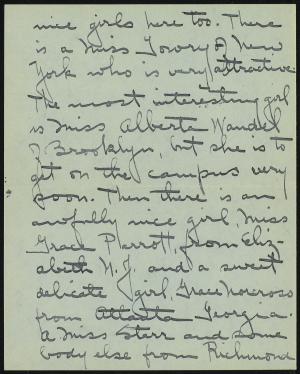 nice girls here too. There
is a Miss Lowry of New
York who is very attractive.
The most interesting girl
is Miss Alberta Wandel
of Brooklyn, but she is to
get on the campus very
soon. Then there is an
awfully nice girl, Miss
Grace Parrott, from Eliz-
abeth N.J. and a sweet
delicate girl, Grace Norcross
from Atlanta Georgia.
A Miss Starr and some
body else from Richmond